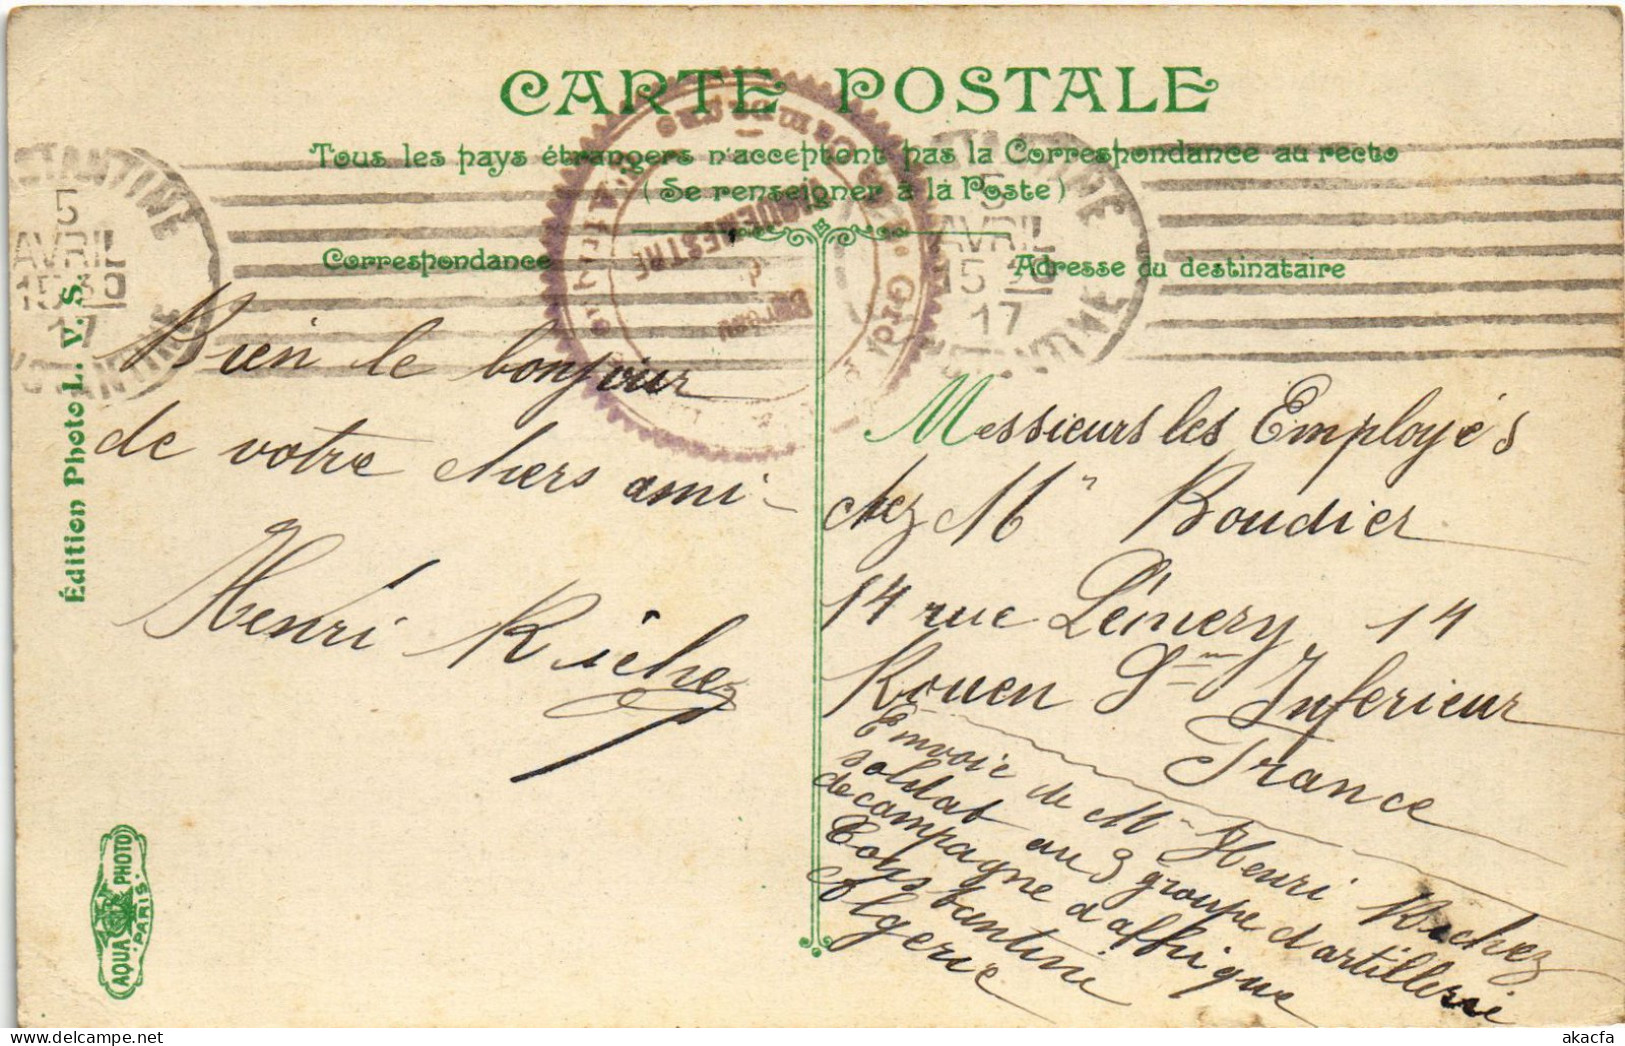 CARTE POSTALE
Tous les pays étrangers n'acceptent pas la Correspondance au recto
(Se renseigner à la Poste)
Correspondance
Adresse du destinataire
CONSTANTINE
5
AVRIL
15 30
17
CONSTANTINE
5
AVRIL
15 30
17
Campagne
d'Afrique
VAGUEMESTRE
Bureau
Bien le bonjour
de votre chers ami
Henri Richez
Messieurs les Employés
chez Mr Boudier
14 rue Lémery 14
Rouen Sne Inferieur
France
Envoie de Mr Henri Richez
soldat au 3 groupe d'artillerie
de campagne d'affrique
Constantine
Algerie
Édition Photo L. V. S.
AQUA PHOTO
PARIS
akacfa